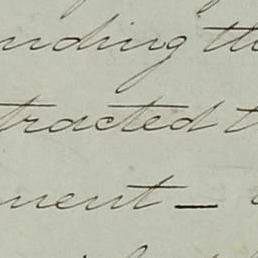 nding th
tracted t
ment —